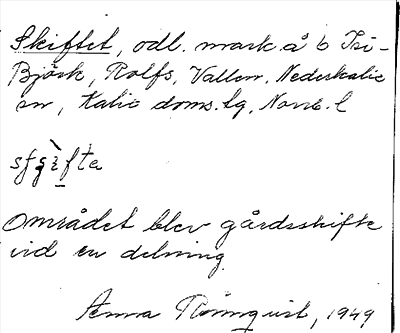 Skiftet, odl. mark å 6 Tri-
Björk, Rolfs, Vallen, Nederkalix
sn, Kalix doms.lg, Norrb. l
Området blev gårdsskifte
vid en delning.
Anna Rönnquist, 1949